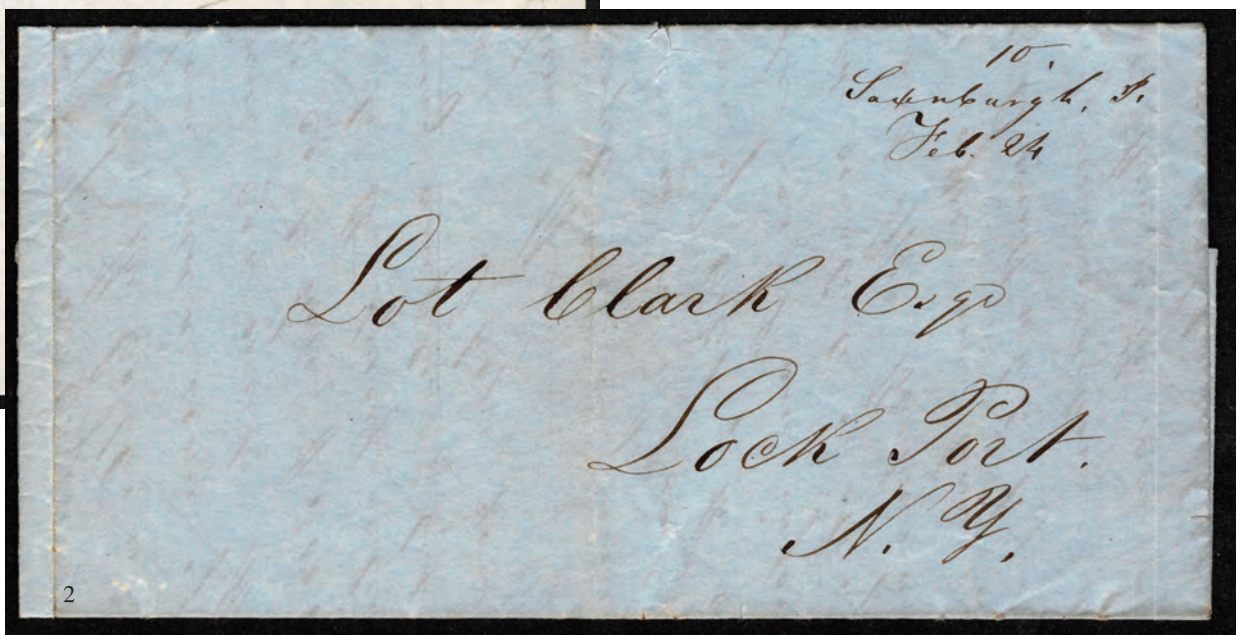 10.
Saxenburgh, P.
Feb. 24
Lot Clark Esqr
Lock Port.
N. Y.
2